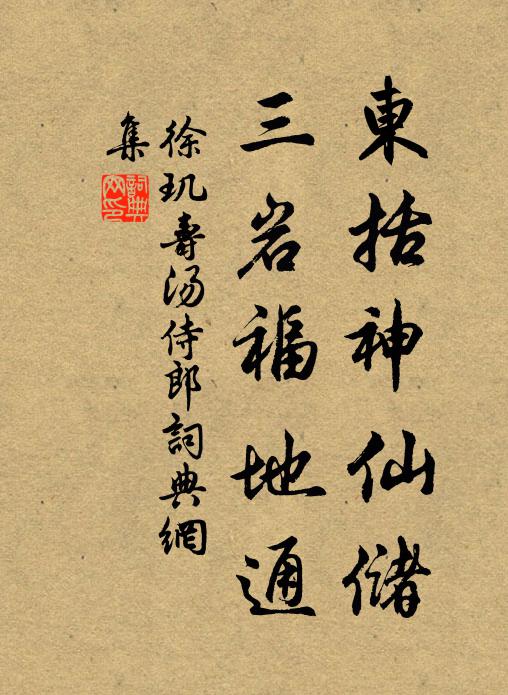 東括神仙儲
三岩福地通
徐玑壽汤侍郎詞典網
集
詞典網印